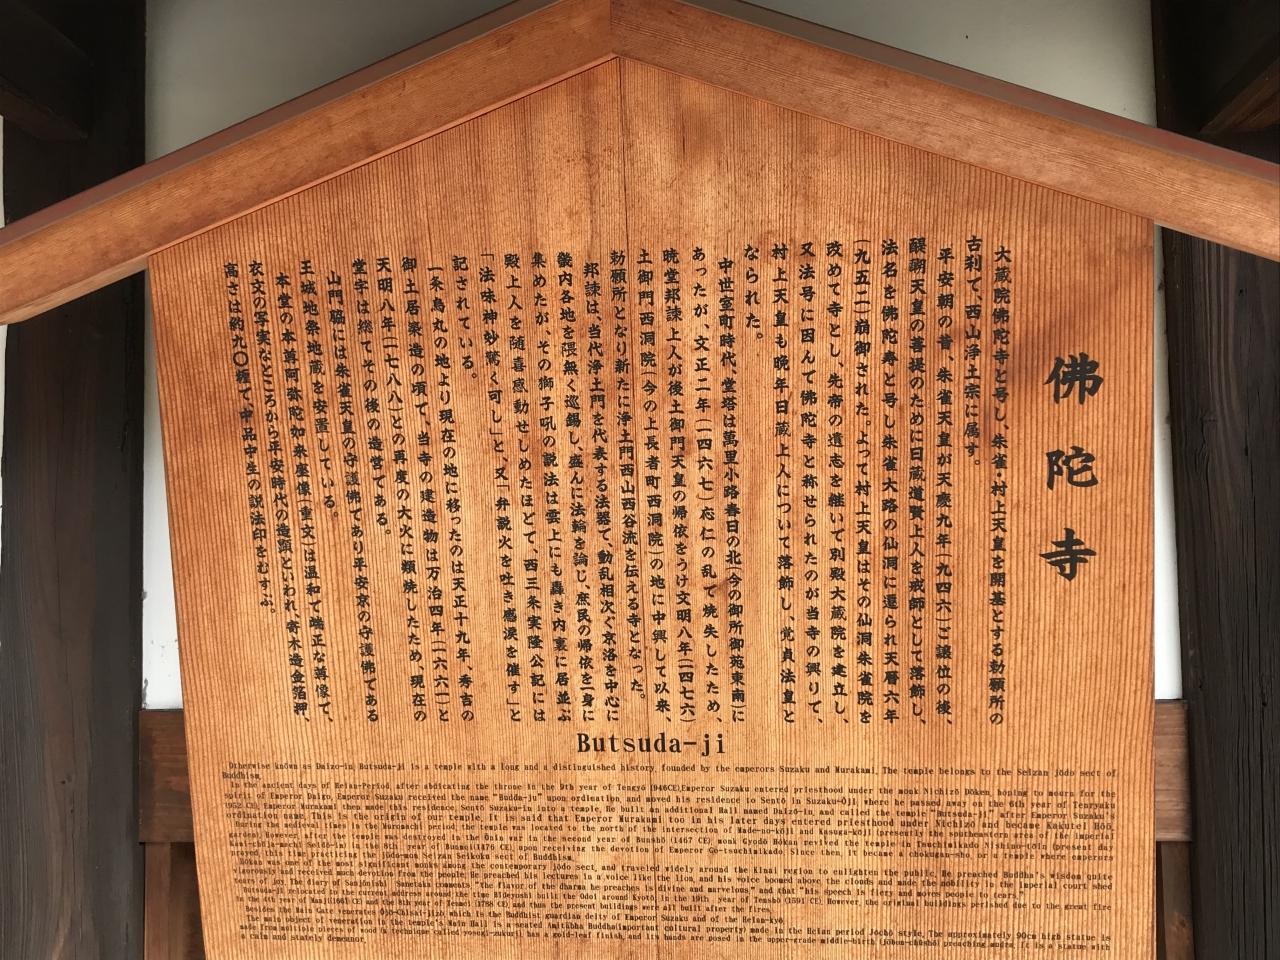 佛陀寺
大蔵院佛陀寺と号し、朱雀・村上天皇を開基とする勅願所の
古刹で、西山浄土宗に属す。
平安朝の昔、朱雀天皇が天慶九年(九四六)ご譲位の後、
醍醐天皇の菩提のために日蔵道賢上人を戒師として落飾し、
法名を佛陀寿と号し朱雀大路の仙洞に還られ天暦六年
(九五二)崩御された。よって村上天皇はその仙洞朱雀院を
改めて寺とし、先帝の遺志を継いで別殿大蔵院を建立し、
又法号に因んで佛陀寺と称せられたのが当寺の興りで、
村上天皇も晩年日蔵上人について落飾し、覚貞法皇と
なられた。
中世室町時代、堂塔は萬里小路春日の北(今の御所御苑東南)に
あったが、文正二年(一四六七)応仁の乱で焼失したため、
暁堂邦諫上人が後土御門天皇の帰依をうけ文明八年(一四七六)
土御門西洞院(今の上長者町西洞院)の地に中興して以来、
勅願所となり新たに浄土門西山西谷流を伝える寺となった。
邦諫は、当代浄土門を代表する法器で、動乱相次ぐ京洛を中心に
畿内各地を隈無く巡錫し、盛んに法輪を論じ、庶民の帰依を一身に
集めたが、その獅子吼の説法は雲上にも轟き内裏に居並ぶ
殿上人を随喜感動せしめたほどで、西三条実隆公記には
「法味神妙驚く可し」と、又「弁説火を吐き感涙を催す」と
記されている。
一条烏丸の地より現在の地に移ったのは天正十九年、秀吉の
御土居築造の頃で、当寺の建造物は万治四年(一六六一)と
天明八年(一七八八)との再度の大火に類焼したため、現在の
堂宇は総てその後の造営である。
山門脇には朱雀天皇の守護佛であり平安京の守護佛である
王城地祭地蔵を安置している。
本堂の本尊阿弥陀如来座像(重文)は温和で端正な尊像で、
衣文の写実なところから平安時代の造顕といわれ、寄木造金箔押、
高さは約九〇糎で、中品中生の説法印をむすぶ。
Butsuda-ji
Otherwise known as Daizo-in Butsuda-ji is a temple with a long and a distinguished history, founded by the emperors Suzaku and Murakami. The temple belongs to the Seizan jōdo sect of
Buddhism.
In the ancient days of Heian-Period after abdicating the throne in the 9th year of Tengyō (946CE), Emperor Suzaku entered priesthood under the monk Nichizō Dōken, hoping to mourn for the
spirit of Emperor Daigo. Emperor Suzaku received the name "Budda-ju" upon ordination, and moved his residence to Sentō in Suzaku-Ōji, where he passed away on the 6th year of Tenryaku
(952 CE). Emperor Murakami then made this residence, Sentō Suzaku-in into a temple. He built an additional Hall named Daizō-in, and called the temple "Butsuda-ji", after Emperor Suzaku's
ordination name. This is the origin of our temple. It is said that Emperor Murakami too in his later days entered priesthood under Nichizō and became Kakutei Hōō.
During the medieval times in the Muromachi period, the temple was located to the north of the intersection of Made-no-kōji and Kasuga-kōji (presently the southeastern area of the imperial
garden). However, after the temple was destroyed in the Ōnin war in the second year of Bunshō (1467 CE), monk Gyodō Hōkan revived the temple in Tsuchimikado Nishino-tōin (present day
kami-chōja-machi Seidō-in) in the 8th year of Bunmei(1476 CE), upon receiving the devotion of Emperor Go-tsuchimikado. Since then, it became a chokugan-sho, or a temple where emperors
prayed, this time practicing the jōdo-mon Seizan Seikoku sect of Buddhism.
Hōkan was one of the most significant monks among the contemporary jōdo sect, and traveled widely around the Kinai region to enlighten the public. He preached Buddha's wisdom quite
vigorously and received much devotion from the people. He preached his lectures in a voice like the lion, and his voice boomed above the clouds and made the nobility in the imperial court shed
tears of joy. The diary of Sanjōnishi Sanetaka comments "the flavor of the dharma he preaches is divine and marvelous," and that "his speech is fiery and moves people to tears."
Butsuda-ji relocated to the current location around the time Hideyoshi built the Odoi around Kyoto, in the 19th year of Tenshō (1591 CE). However, the original buildings perished due to the great fire
in the 4th year of Manji(1661 CE) and the 8th year of Tenmei (1788 CE), and thus the present buildings were all built after the fires.
Besides the Main Gate venerates Ōjō-Chisai-jizō, which is the Buddhist guardian deity of Emperor Suzaku and of the Heian-kyō.
The main object of veneration in the temple's Main Hall is a seated Amitābha Buddha(important cultural property) made in the Heian period Jōchō style. The approximately 90cm high statue is
made from multiple pieces of wood (a technique called yosegi-zukuri), has a gold-leaf finish, and its hands are posed in the upper-grade middle-birth (jōbon-chūshō) preaching mudra. It is a statue with
a calm and stately demeanor.